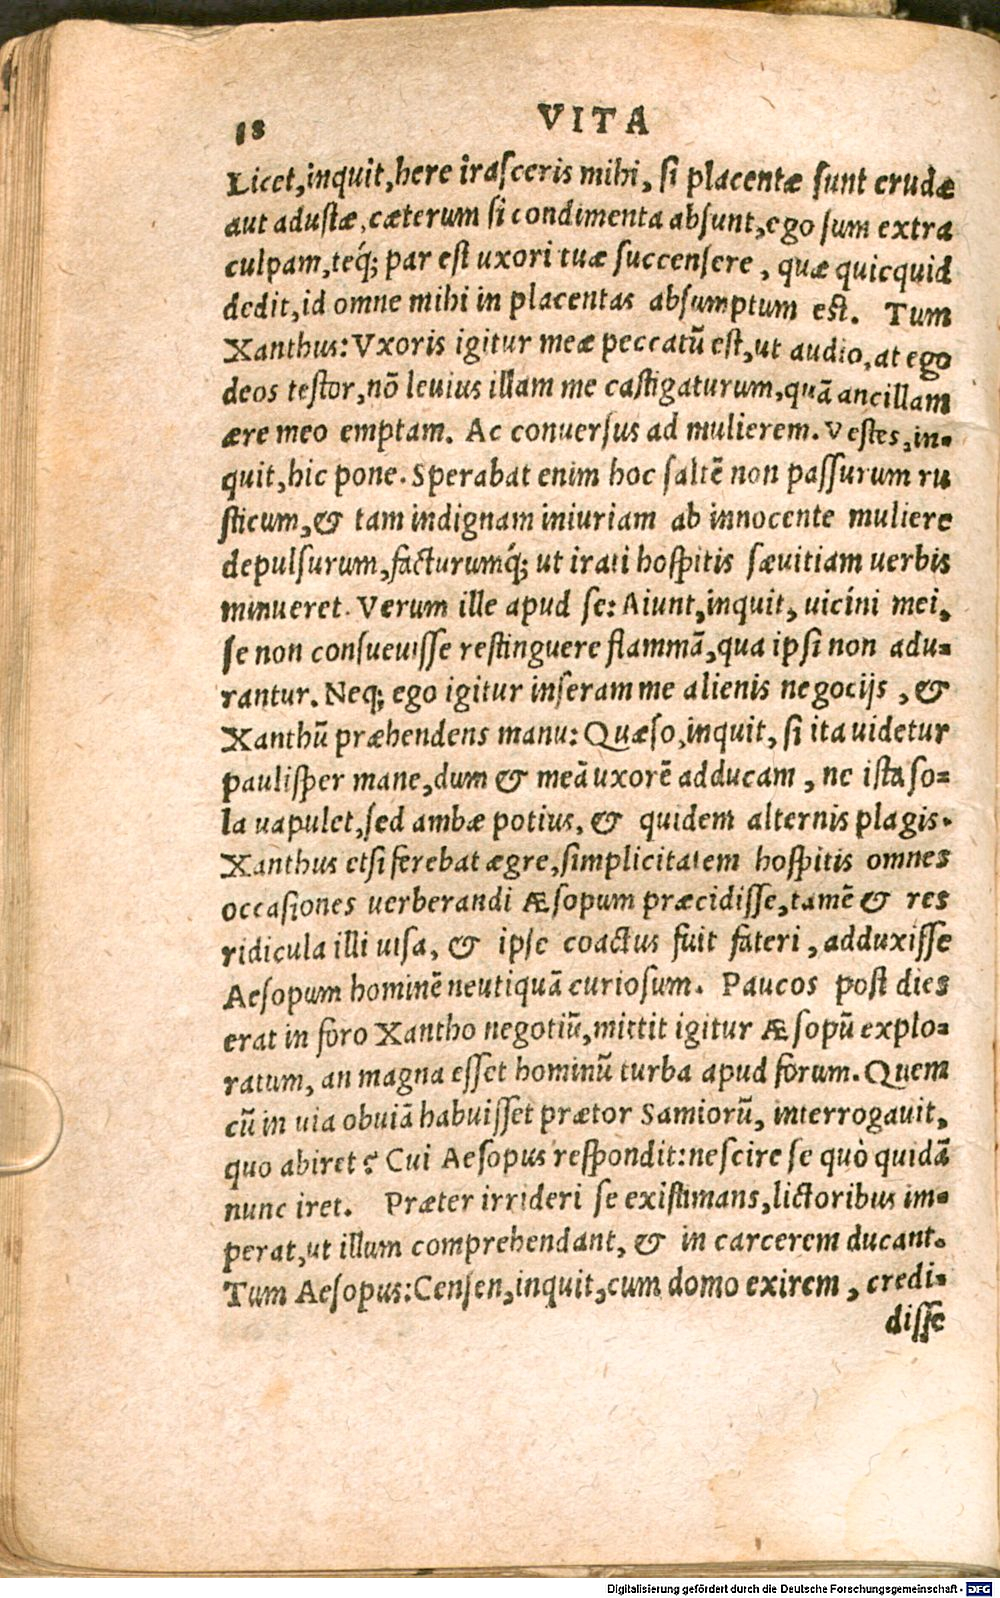 18 VITA
Licet, inquit, here irasceris mihi, si placentæ sunt crudæ
aut adustæ, cæterum si condimenta absunt, ego sum extra
culpam, teq́; par est uxori tuæ succensere, quæ quicquid
dedit, id omne mihi in placentas absumptum est. Tum
Xanthus: Vxoris igitur meæ peccatū est, ut audio, at ego
deos testor, nō leuius illam me castigaturum, quā ancillam
ære meo emptam. Ac conuersus ad mulierem. Vestes, in-
quit, hic pone. Sperabat enim hoc saltē non passurum ru
sticum, & tam indignam iniuriam ab innocente muliere
depulsurum, facturumq́; ut irati hospitis sæuitiam uerbis
minueret. Verum ille apud se: Aiunt, inquit, uicini mei,
se non consueuisse restinguere flammā, qua ipsi non adu-
rantur. Neq; ego igitur inseram me alienis negocijs, &
Xanthū præhendens manu: Quæso, inquit, si ita uidetur
paulisper mane, dum & meā uxorē adducam, ne ista so-
la uapulet, sed ambæ potius, & quidem alternis plagis.
Xanthus etsi ferebat ægre, simplicitatem hospitis omnes
occasiones uerberandi Æsopum præcidisse, tamē & res
ridicula illi uisa, & ipse coactus fuit fateri, adduxisse
Aesopum hominē neutiquā curiosum. Paucos post dies
erat in foro Xantho negotiū, mittit igitur Æsopū explo-
ratum, an magna esset hominū turba apud forum. Quem
cū in uia obuiā habuisset prætor Samiorū, interrogauit,
quo abiret? Cui Aesopus respondit: nescire se quò quidā
nunc iret. Præter irrideri se existimans, lictoribus im-
perat, ut illum comprehendant, & in carcerem ducant.
Tum Aesopus: Censen, inquit, cum domo exirem, credi-
disse
Digitalisierung gefördert durch die Deutsche Forschungsgemeinschaft - DFG